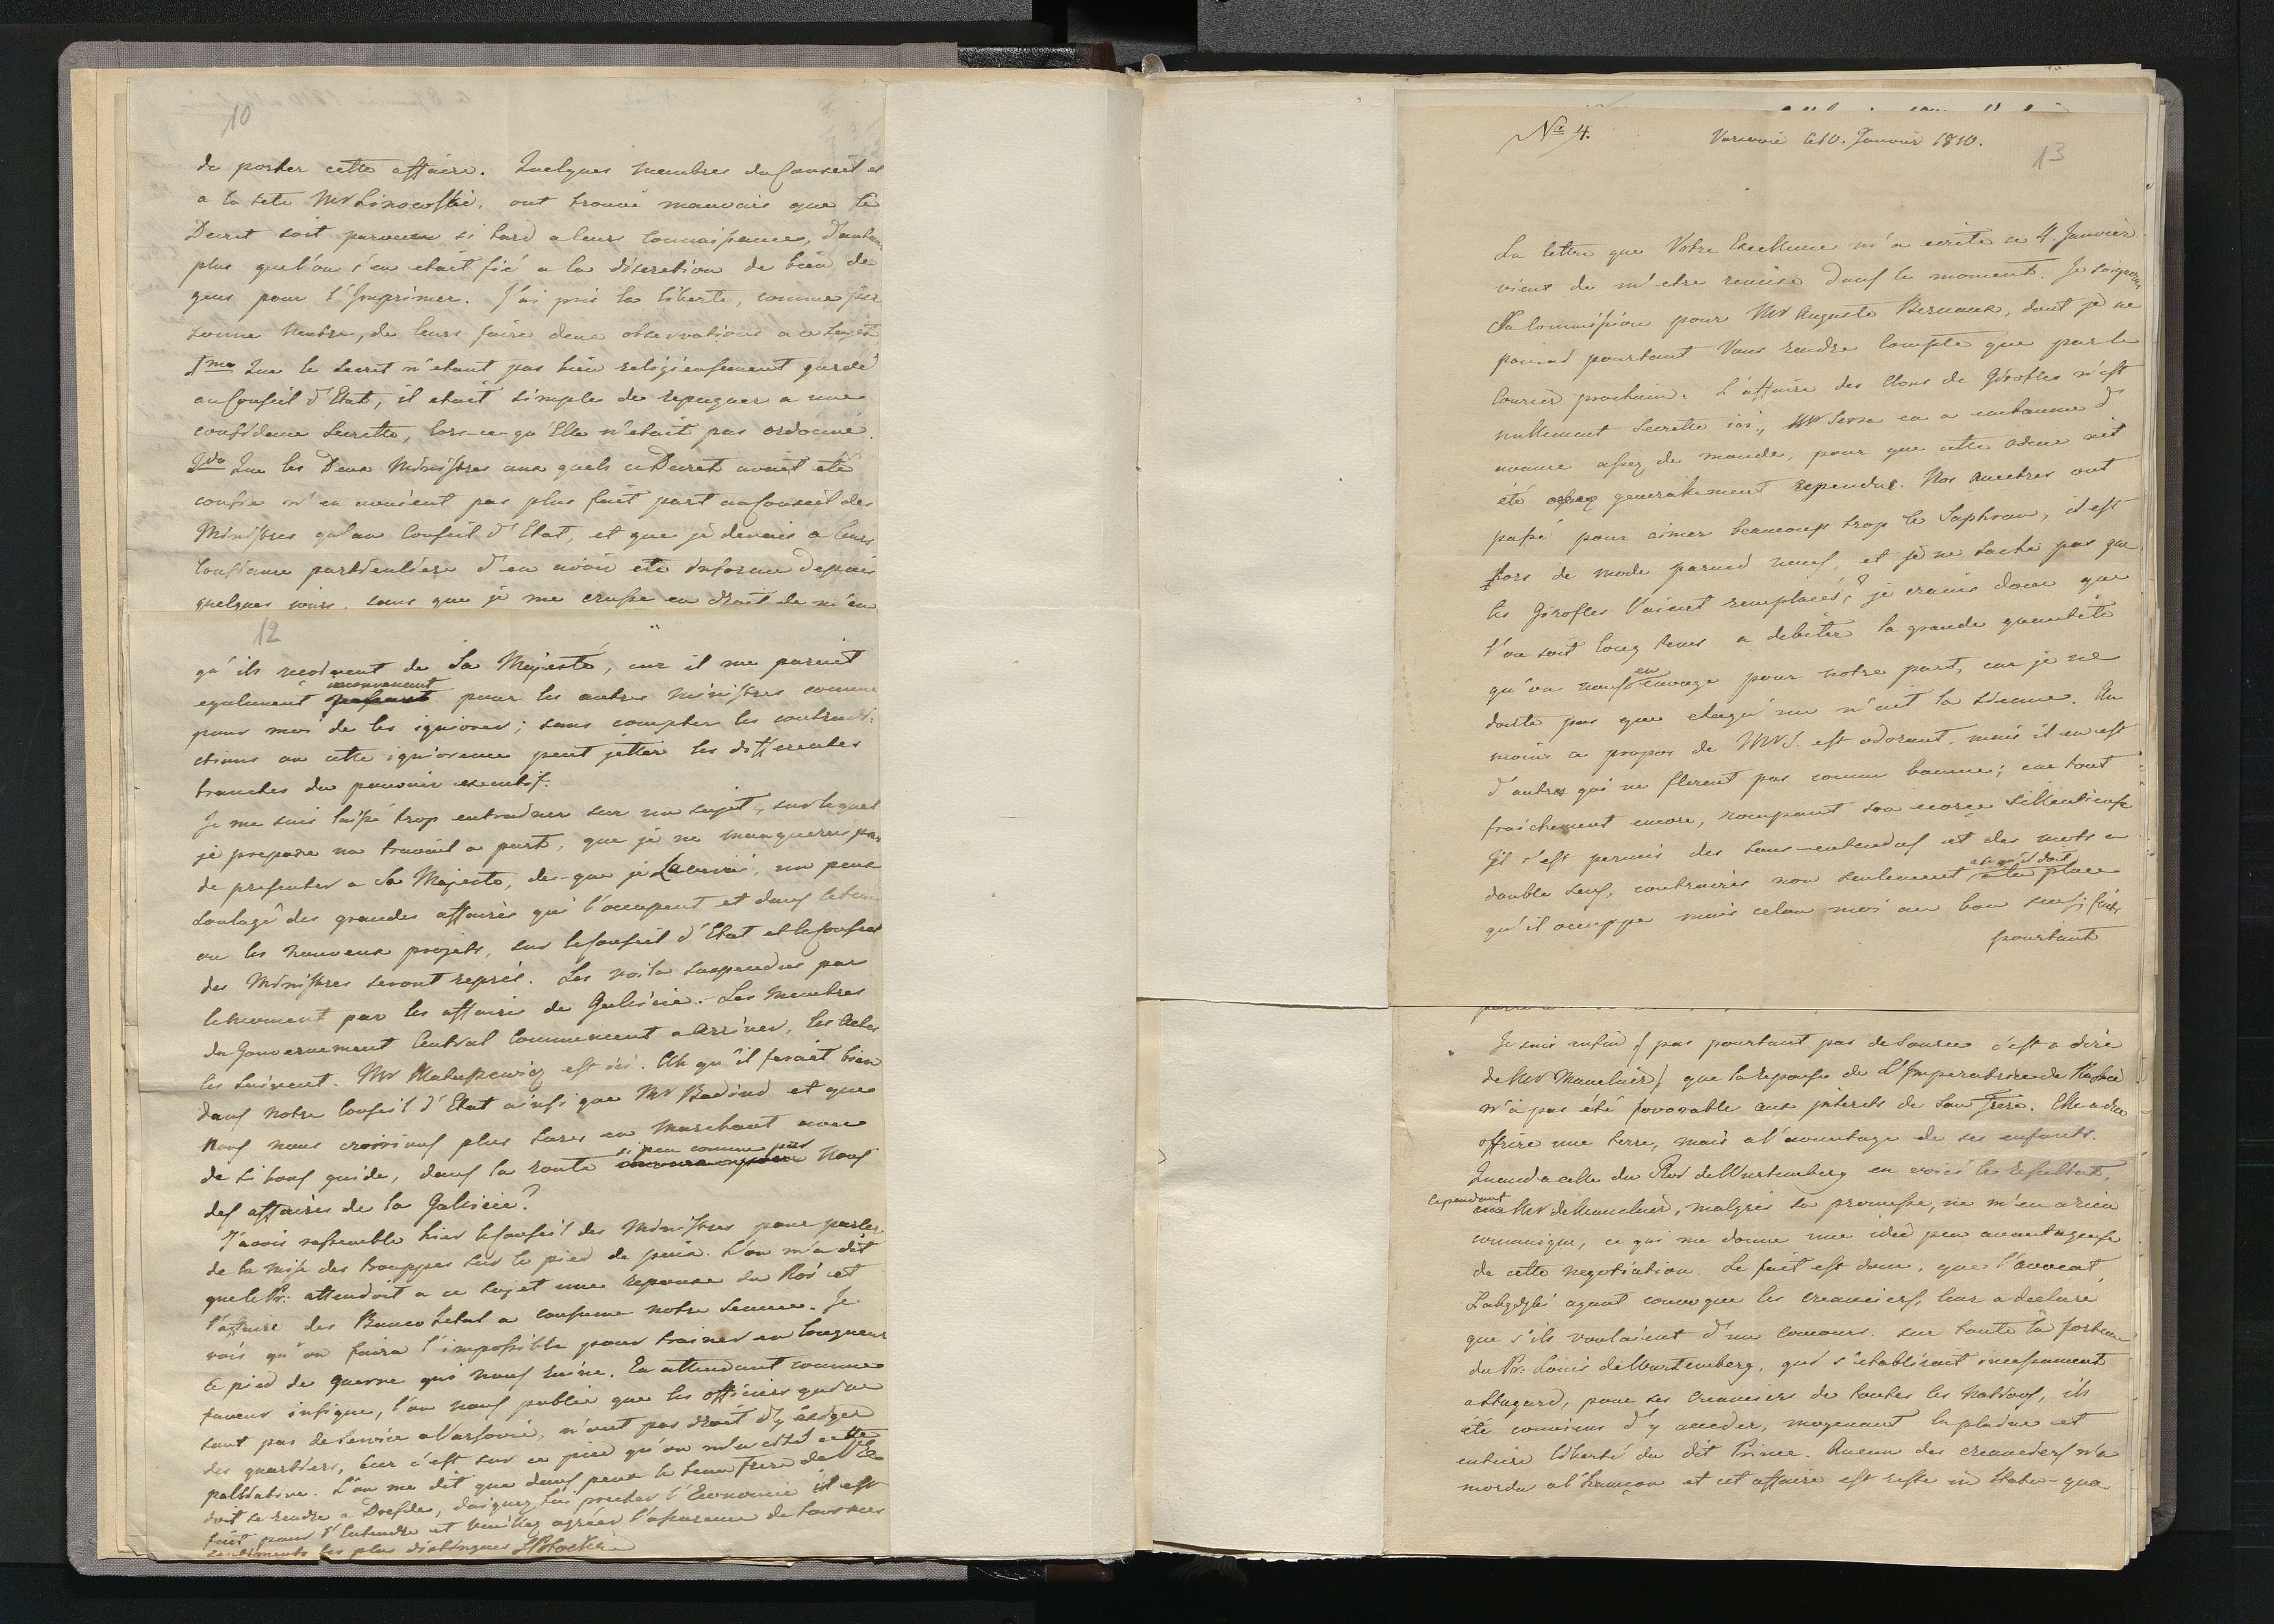 10
de porter cette affaire. Quelques membres du Conseil et
a la tete Mr Linowski, ont trouvé mauvais que le
Decret soit parvenu si tard a leurs connaissance, d'autant
plus que l'on s'en etait fié a la discretion de bien de
gens pour l'Imprimer. J'ai pris la liberté, comme per
sonne neutre, de leurs faire deux observations a ce sujet
1mo Que le secret n'etant pas bien religieusement gardé
au Conseil d'Etat, il etait simple de repugner a une
confidence secrette, lors-ce-qu'Elle n'etait pas ordonné.
2do Que les Deux Ministres aux quels ce Decret avait eté
confié n'en avaient pas plus fait part au Conseil des
Ministres qu'au Conseil d'Etat, et que je devais a leurs
confiance particuliere d'en avoir eté informé depuis
quelques jours, sans que je me crusse en droit de m'en
12
qu'ils recoivent de Sa Majesté, car il me parait
inconvenant
egalement pour les autres Ministres comme
pour moi de les ignorer; sans compter les contradi-
ctions ou cette ignorance peut jetter les differentes
branches du pouvoir executif.
Je me suis laissé trop entrainer sur un sujet, sur lequel
je prepare un travail a part, que je ne manquerais pas
de presenter a Sa Majesté, des-que je La verrai, un peu
soulagé des grandes affaires qui l'occupent et dans le tems
ou les nouveaux projets, sur le Conseil d'Etat et le Conseil
des Ministres seront repris. Les voila suspendus par
le moment par les affaires de Galicie. Les Membres
du Gouvernement Central commencent a arriver, les Actes
les suivent. Mr Matuszewicz est ici. Ah qu'il ferait bien
dans notre Conseil d'Etat ainsi que Mr Badeni et que
nous nous croirions plus surs en marchant avec
si peu connue par
de si bons guides, dans la route nous
des affaires de la Galicie?
J'avois rassemblé hier le Conseil des Ministres pour parler
de la mise des trouppes sur le pied de paix. L'on m'a dit
que le Pr: attendoit a ce sujet une reponse du Roi et
l'affaire des a consumé notre Seance. Je
vois qu'on faira l'impossible pour trainer en longueur
le pied de guerre qui nous ruine. En attendant comme
faveur insigne, l'on nous publie que les officiers qui ne
sont pas de Service a Varsovie, n'ont pas droit d'y exiger
des quartiers, car c'est sur ce pied qu'on m'a cité cette
palliative. L'on me dit que dans peu le beau Frere de V: E.
doit se rendre a Dresde, daignez lui precher l'Economie il est
fait pour l'entendre et veuillez agréer l'assurance de tous mes
sentiments les plus distingues SPotocki
No 4. Varsovie le 10. Janvier 1810.
13
La lettre que Votre Excellence m'a ecrite ce 4. Janvier
vient de m'etre remise dans le moment. Je soignerai
Sa Commission pour Mr Auguste Bernaux, dont je ne
pourrai pourtant Vous rendre compte que par le
Courier prochain. L'affaire des Clous de Girofles n'est
nullement secrette ici, Mr Serra en a embaumé d'
avance assez de monde, pour que cette odeur ait
été assez generalement rependue. Nos ancetres ont
passé pour aimer beaucoup trop le Saphran, il est
hors de mode parmi nous, et je ne sache pas que
les Girofles l'aient remplacés; je crains donc que
l'on soit long tems a debiter la grande quantité
en
qu'on nous envoye pour notre part, car je ne
doute pas que chaqu'une n'ait la sienne. Au
moins ce propos de Mr S. est odorant, mais il en est
d'autres qui ne flerent pas comme baume; car tout
fraichement encore, rompant son ecorce sillentieuse
Il s'est permis des sous-entendus et des mots a
a ce qu'il doit
double sens, contraires non seulement a la place
qu'il occuppe mais selon moi au bon sens;
pourtant
Je sais enfin / pas pourtant pas de source c'est a dire
de Mr Maucler / que la reponse de l'Imperatrice de Russie
n'a pas été favorable aux interets de son Frere. Elle a du
offrire une terre, mais a l'avantage de ses enfants.
Quand a celle du Roi de Wurtemberg en voici le resultat,
cependant
Mr de Maucler, malgré sa promesse, ne m'en a rien
comuniqué, ce qui me donne une idée peu avantageuse
de cette negotiation. Le fait est donc, que l'avocat
ayant convoqué les creanciers, leur a declaré
que s'ils voulaient d'un concours sur toute la fortune
du Pr: Louis de Wurtemberg, qui s'etablirait incessament
a Stugard, pour ses creanciers de toutes les Nations, ils
été convient d'y acceder, moyenant la pleine et
entiere liberté du dit Prince. Aucun des creanciers n'a
mordu a l'hameçon et cet affaire est resté in statu-quo.